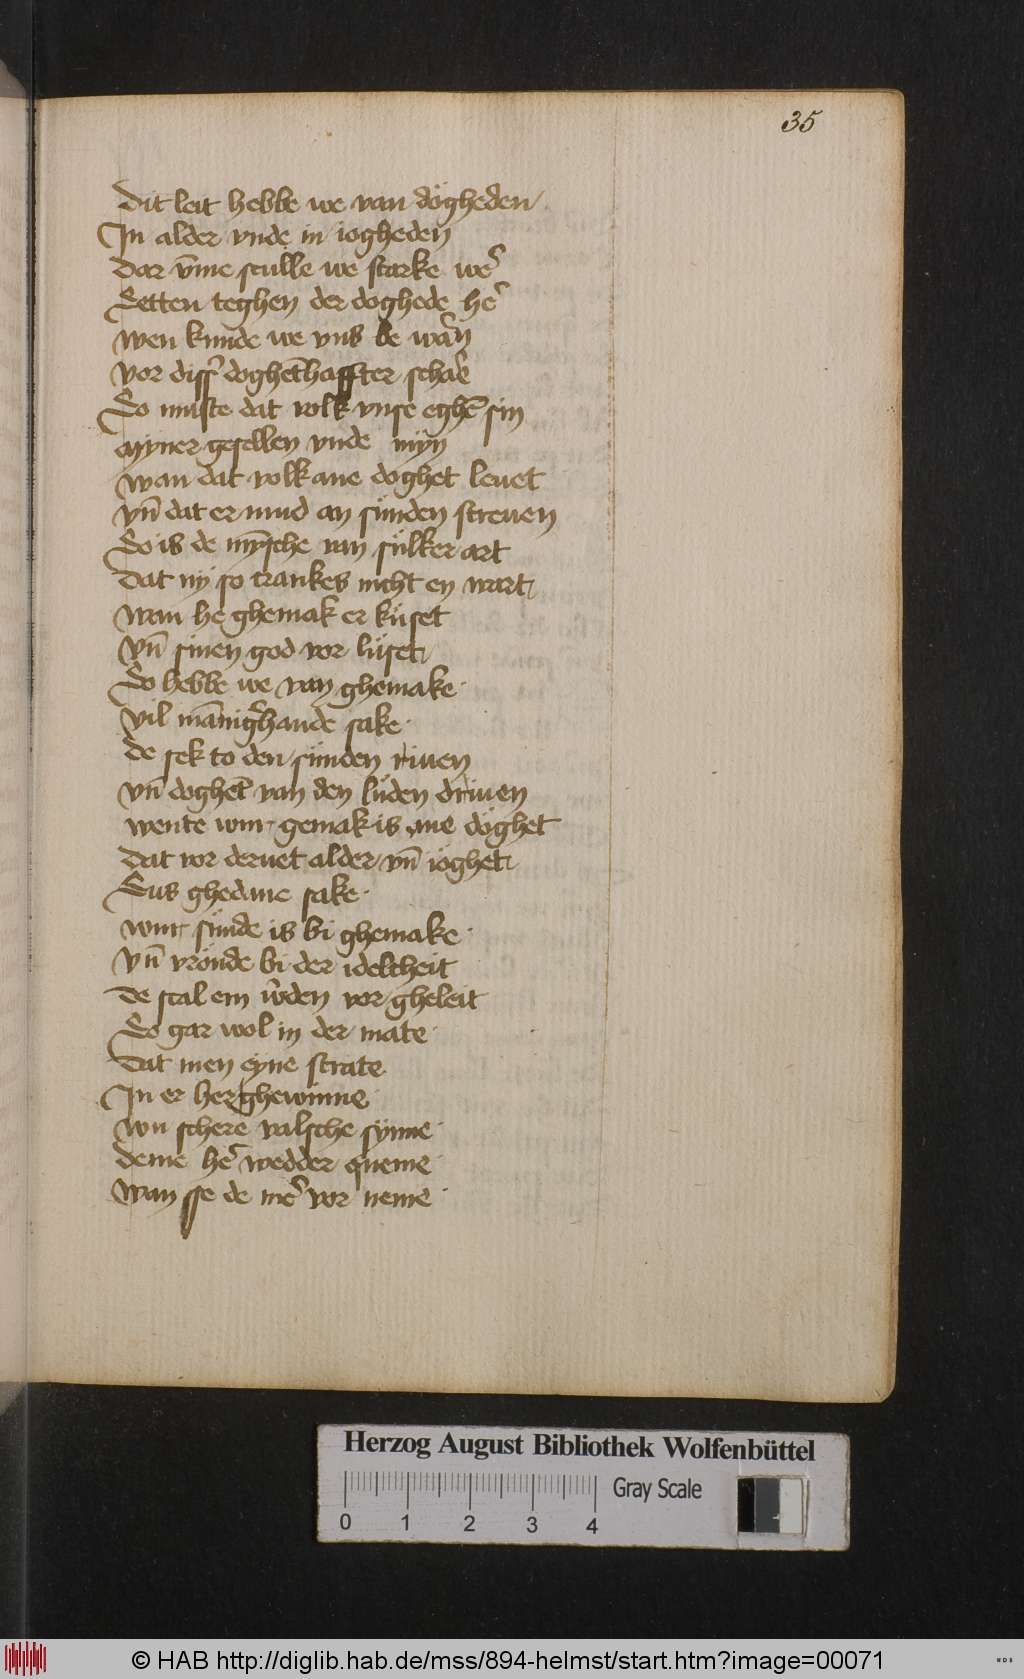 35
Dit leit hebbe we van dögheden
In alder vnde in iogheden
Dar v̄me sculle we starke we᷑
Setten teghen der doghede he᷑
Wen kunde we vns be wa᷑n
Vor diss᷑ doghēthaffter scha᷑e
So muste dat volk vnse eghē sin
Myner gesellen vnde myn
Wan dat volk ane doghet leuet
Vn̄ dat er mud an sunden streuen
So is de mȳsche van sülker art
Dat ny so crankes nicht en wart
Wan he ghemak er küset
Vn̄ sinen god vor lüset
So hebbe we van ghemake
Vil mānigh᷑ande sake
De sek to den sunden riuen
Vn̄ doghēt van den lüden driuen
Wente wur gemak is ane döghet
Dat vor deruet alder vn̄ ioghet
Sus ghedane sake
Wur sünde is bi ghemake
Vn̄ vrönde bi der idelcheit
De scal em w᷑den vor gheleit
So gar wol in der mate
Dat men eyne strate
In er her ghewinne
Wu schere valsche synne
Deme he᷑ wedder queme
Wan sse de me᷑ vor neme
Herzog August Bibliothek Wolfenbüttel
0 1 2 3 4
Gray Scale
© HAB http://diglib.hab.de/mss/894-helmst/start.htm?image=00071